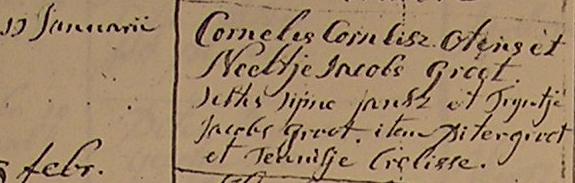 19 Januarii
Cornelis Cornlisz Otens et
Neeltje Jacobs Groot.
testes Sijme Jansz et Tryntje
Jacobs Groot. item Piter groot
et Teunisje Crelisse.
febr.